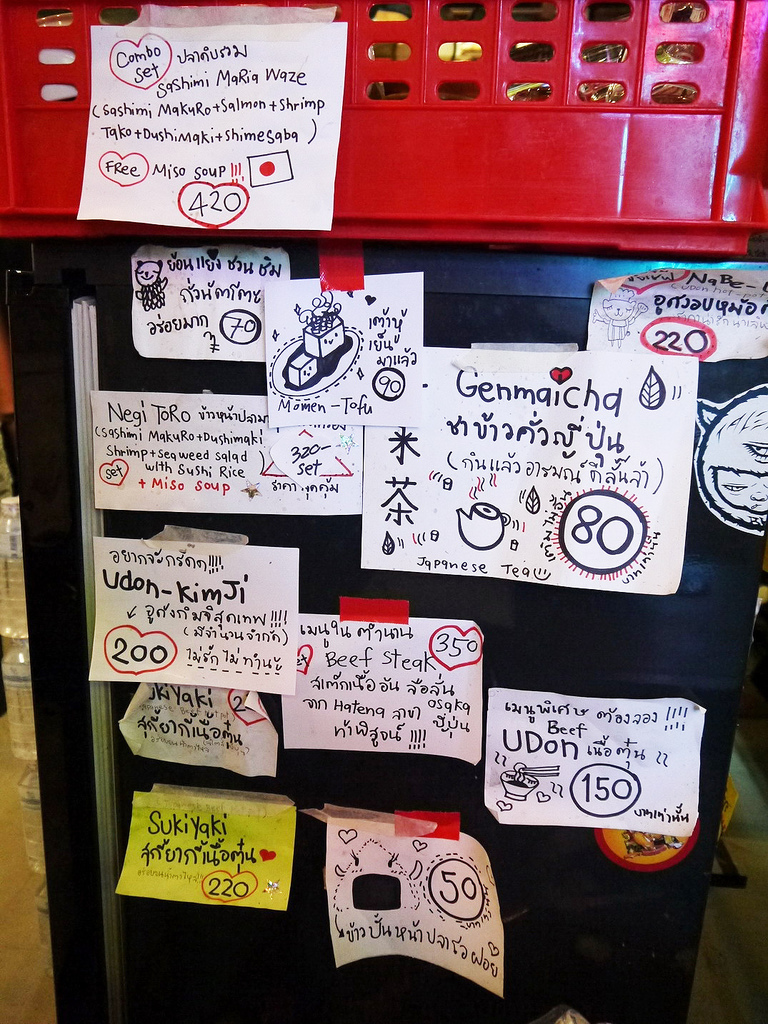 Combo set ปลาดิบรวม
Sashimi Maria Waze
(Sashimi Makuro+Salmon+Shrimp
Tako+Dushimaki+Shimesaba)
Free Miso soup !!!
420
ย้อนแย้ง ชวน ชิม
ถั่วนัตโตะ
อร่อยมาก
70
เต้าหู้
เย็น
มาแล้ว
90
Momen-Tofu
NaBe-U
อูด้งอบหม้อ
220
Negi Toro ข้าวหน้าปลา
(Sashimi Makuro+Dushimaki
Shrimp+seaweed salad
with Sushi Rice
set + Miso soup
320-
set
Genmaicha
ชาข้าวคั่วญี่ปุ่น
(กินแล้วอารมณ์ดีลั้นล้า)
米
茶
80
Japanese Tea
อยากจะกรี๊ดด !!!!
Udon-Kimji
อูด้งกิมจิสุดเทพ !!!!
(มีจำนวนจำกัด)
200 ไม่รัก ไม่ทำนะ
เมนูใน ตำนาน
350
Beef Steak
สเต๊กเนื้ออัน ลือลั่น
จาก Hatena สาขา Osaka
ญี่ปุ่น
ท้าพิสูจน์ !!!!
ukiyaki 2
สุกี้ยากี้เนื้อตุ๋น
เมนูพิเศษ ต้องลอง !!!!
Beef
Udon เนื้อตุ๋น
150
บาทเท่านั้น
Sukiyaki
สุกี้ยากี้เนื้อตุ๋น
220
50
ข้าวปั้นหน้าปลาโอฝอย